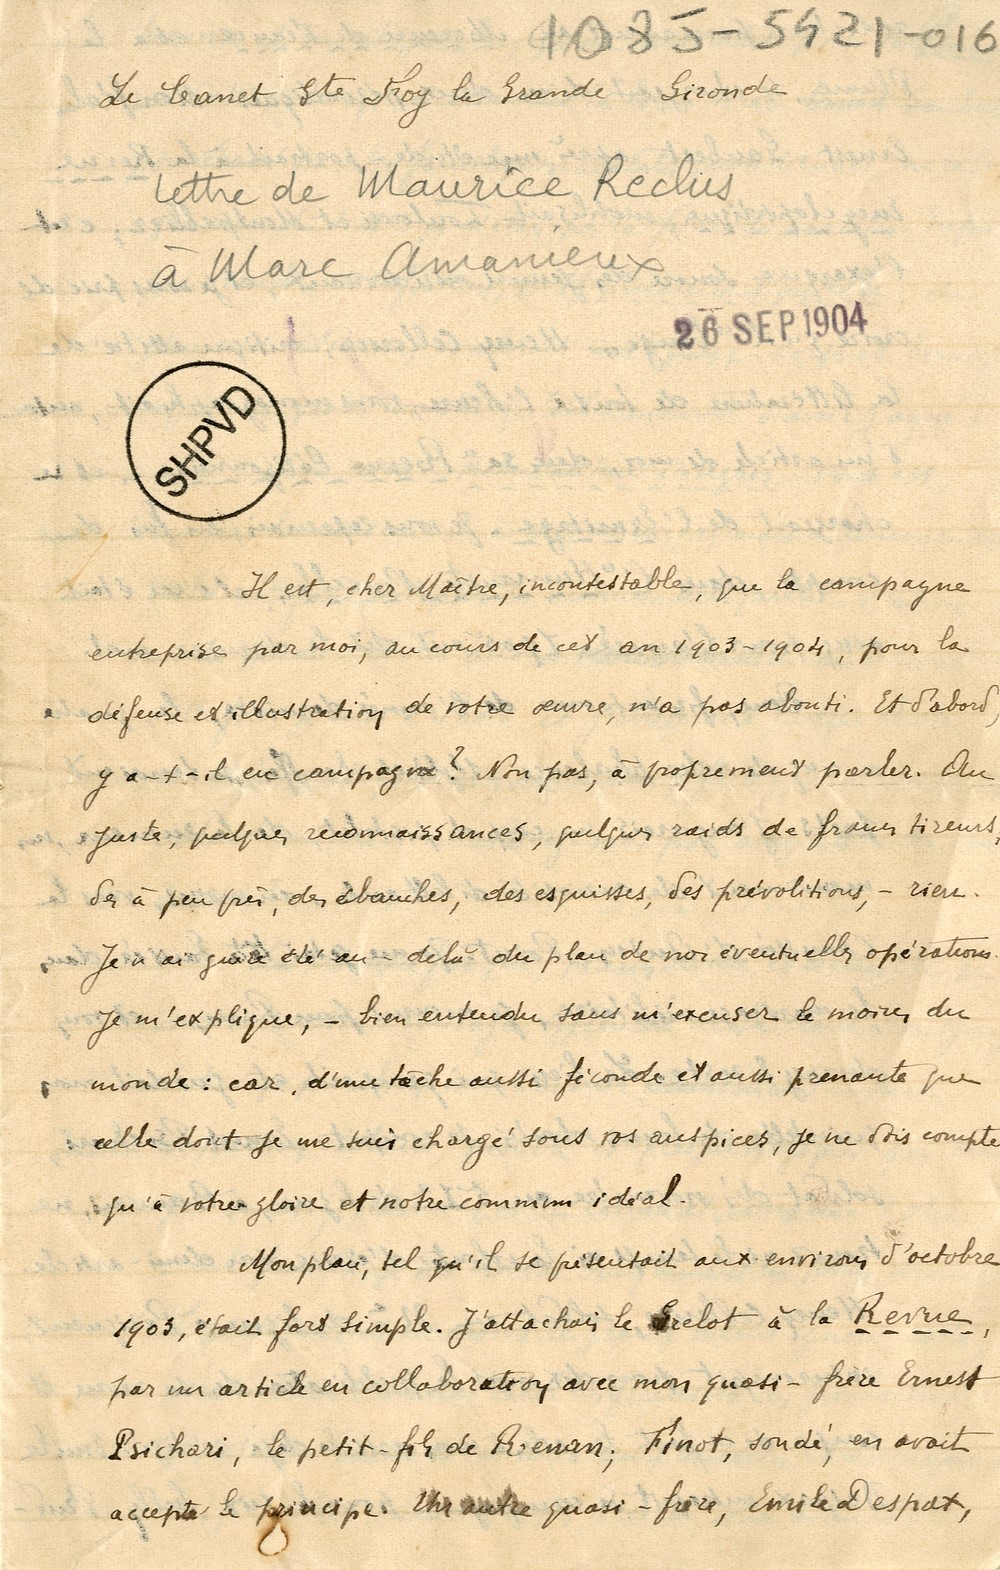 1085-5421-016
Le Canet Ste Foy la Grande Gironde
Lettre de Maurice Reclus
à Marc Amanieux
26 SEP 1904
SHPVD
Il est, cher Maître, incontestable, que la campagne
entreprise par moi, au cours de cet an 1903-1904, pour la
défense et illustration de votre œuvre, n'a pas abouti. Et d'abord,
y a-t-il eu campagne? Non pas, à proprement parler. Au
juste, quelques reconnaissances, quelques raids de francs tireurs,
des à peu près, des ébauches, des esquisses, des prévolitions, - rien.
Je n'ai guère été au-delà du plan de nos éventuelles opérations.
Je m'explique, - bien entendu sans m'excuser le moins du
monde : car, d'une tâche aussi féconde et aussi prenante que
celle dont je me suis chargé sous vos auspices, je ne dois compte
qu'à votre gloire et notre commun idéal.
Mon plan, tel qu'il se présentait aux environs d'octobre
1903, était fort simple. J'attachais le Grelot à la Revue,
par un article en collaboration avec mon quasi-frère Ernest
Psichari, le petit-fils de Renan; Finot, sondé, en avait
accepté le principe. Un autre quasi-frère, Emile Despax,